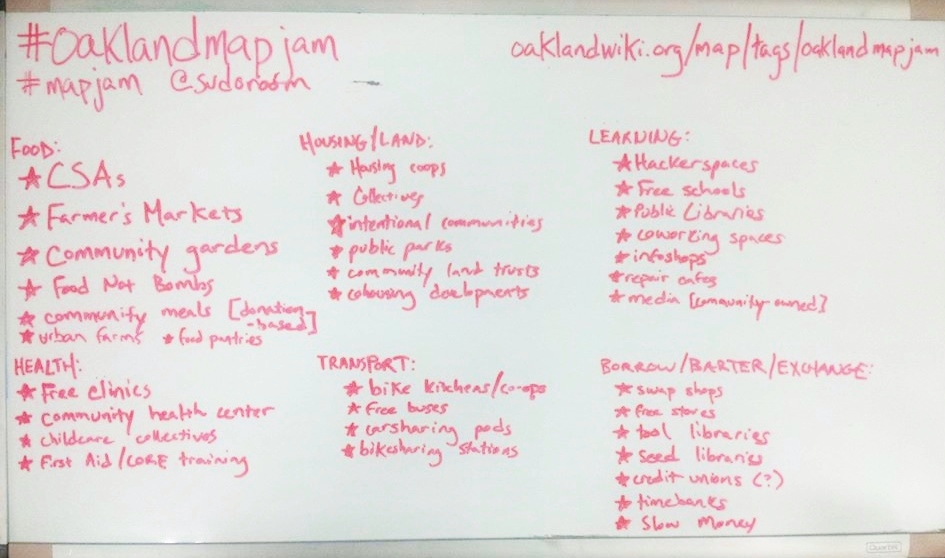 #Oaklandmapjam
#mapjam @sudoroom
oaklandwiki.org/map/tags/oaklandmapjam
FOOD:
★ CSAs
★ Farmer's Markets
★ Community gardens
★ Food Not Bombs
★ community meals [donation-
-based]
★ urban farms ★ food pantries
HOUSING/LAND:
★ Housing coops
★ Collectives
★ intentional communities
★ public parks
★ community land trusts
★ cohousing developments
LEARNING:
★ Hackerspaces
★ Free schools
★ Public Libraries
★ coworking spaces
★ infoshops
★ repair cafes
★ media [community-owned]
HEALTH:
★ Free clinics
★ community health center
★ childcare collectives
★ First Aid/CORE training
TRANSPORT:
★ bike kitchens/co-ops
★ Free buses
★ carsharing pods
★ bikesharing stations
BORROW/BARTER/EXCHANGE:
★ swap shops
★ free stores
★ tool libraries
★ seed libraries
★ credit unions (?)
★ timebanks
★ Slow Money
Quartet